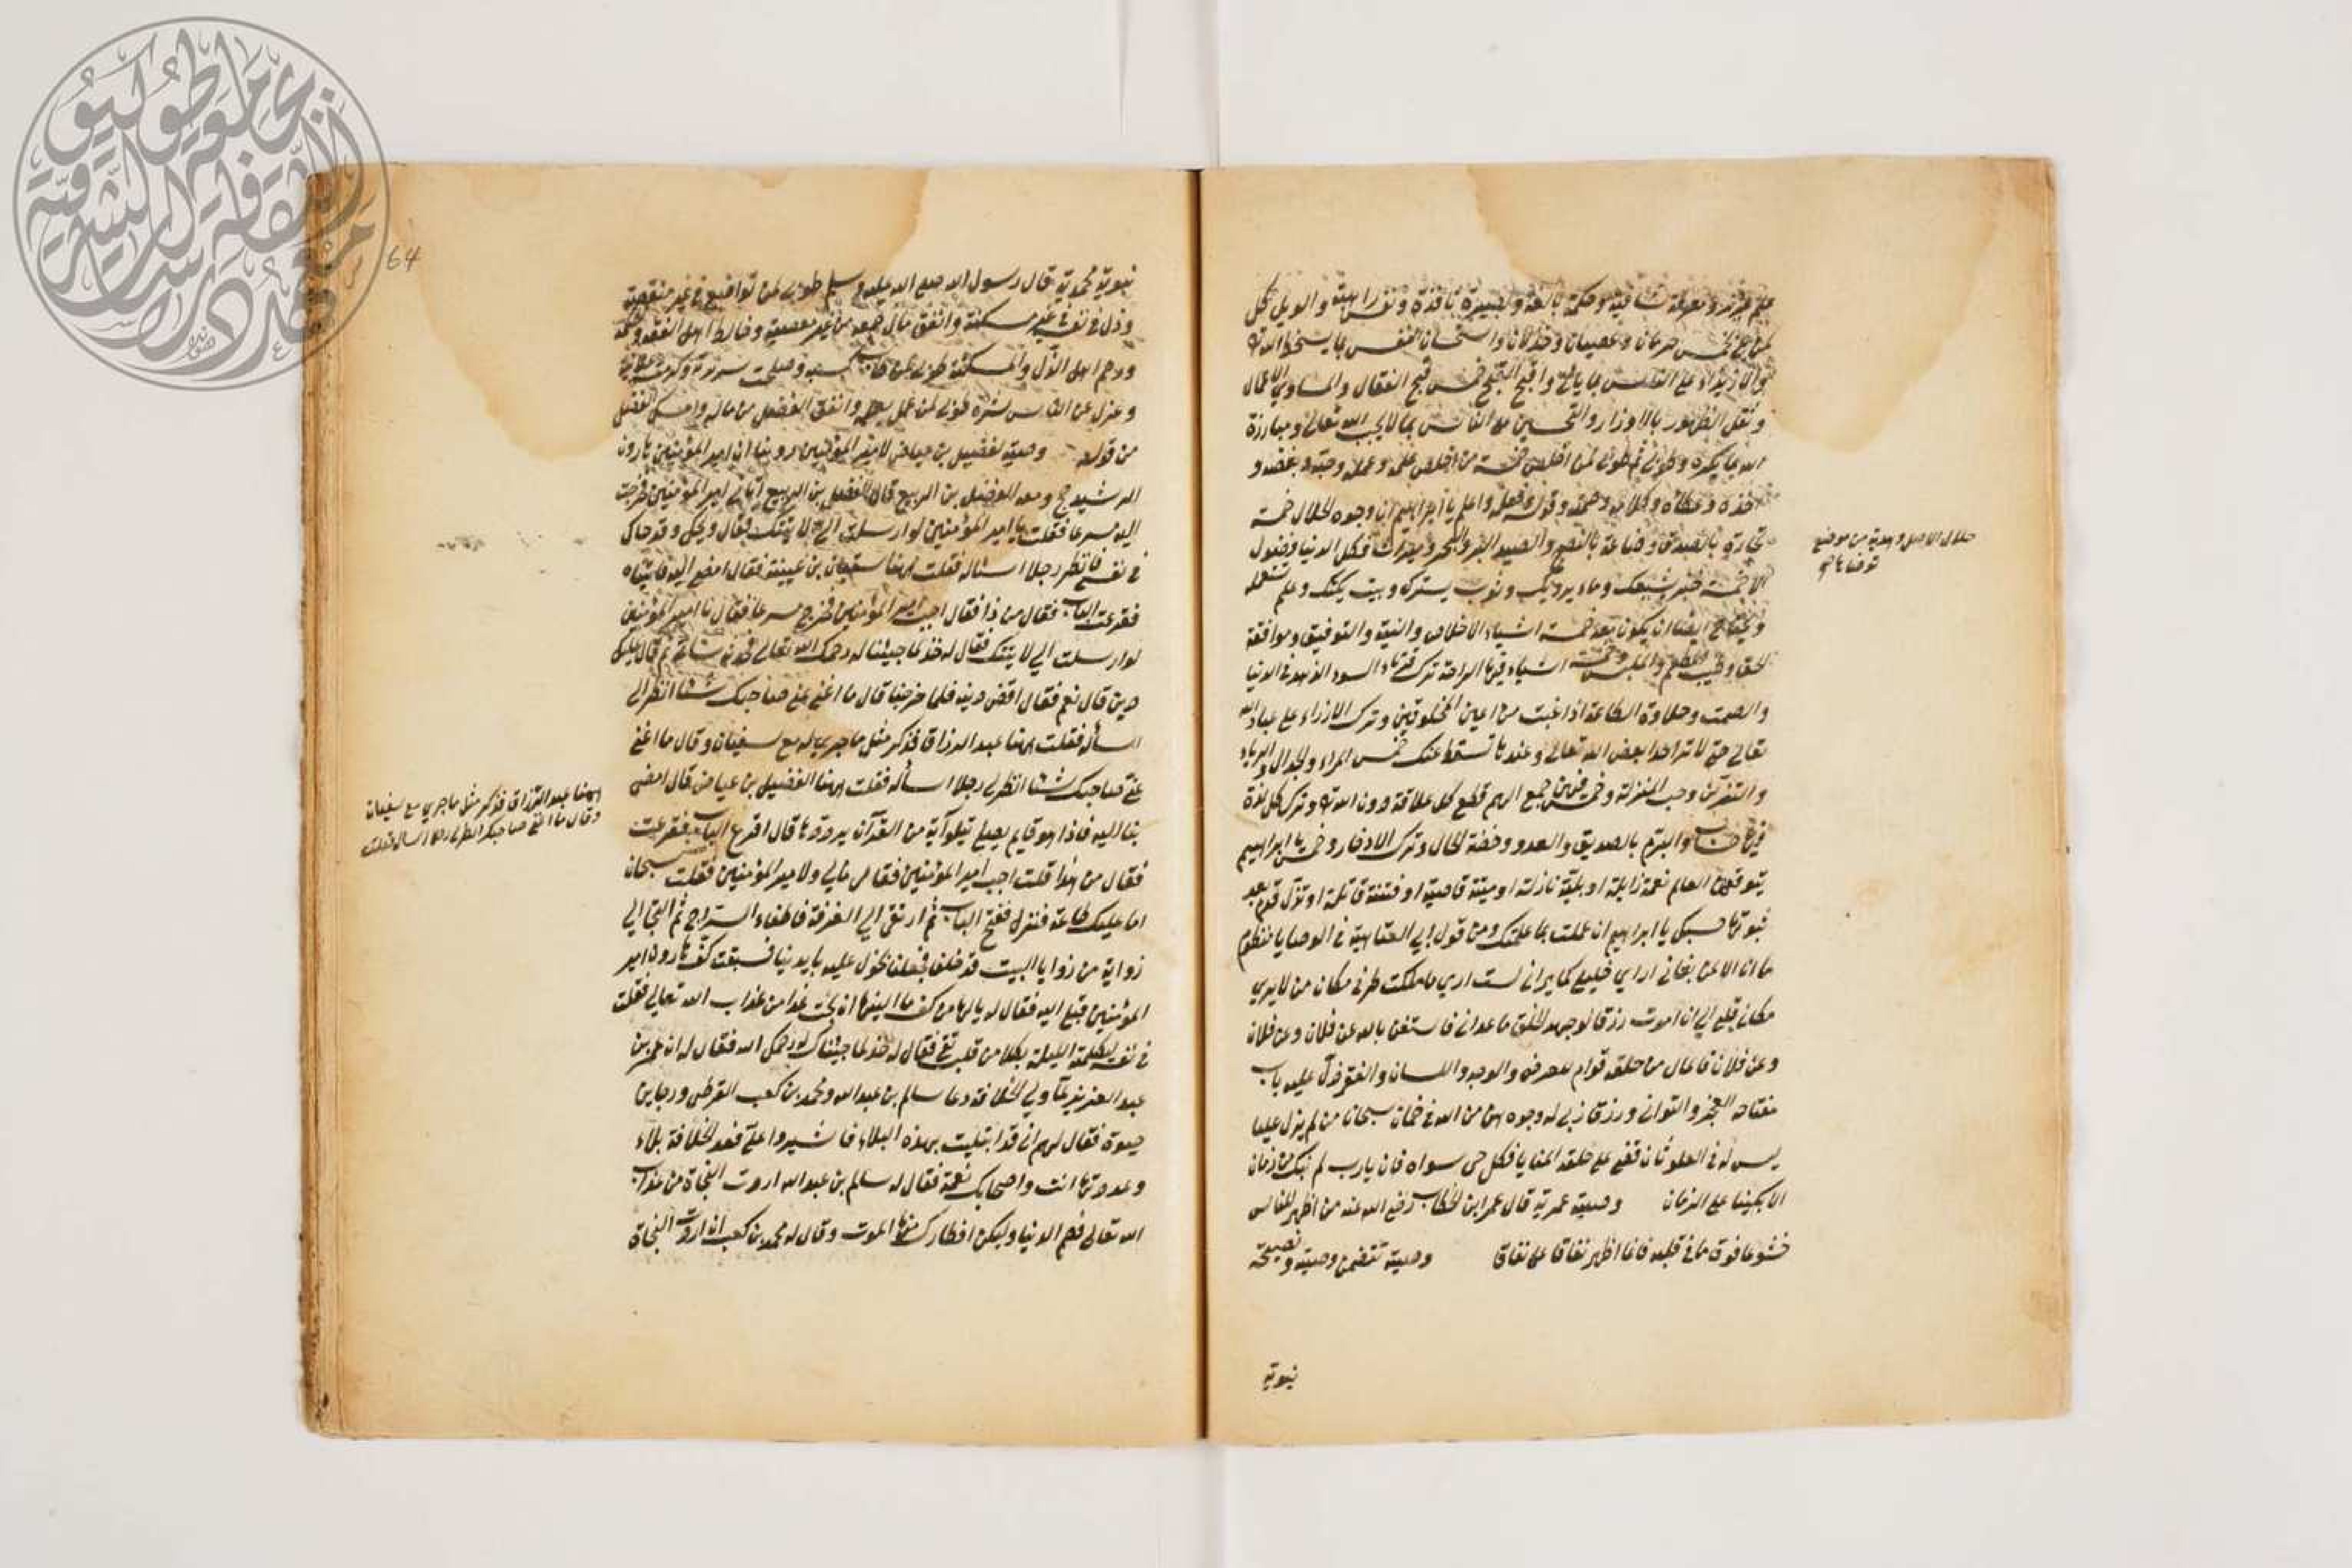 علم غزير ومعرفة شافية وحكمة بالغة وبصيرة نافذة ونفس راهبة والويل كل
لمن بلى بخمس حرمان وعصيان وخذلان واستحسان النفس بما يسخط الله
والازدراء على الناس بما ياتي واقبح القبح خمس قبح الفعال والمساوي الاعمال
وثقل الظهور بالاوزار والتحسين مع الناس بما لا يحب الله تعالى ومبارزة
الله بما يكره وطوبى ثم طوبى لمن اخلص خمسة من اخلص علمه وعمله وحبه وبغضه و
اخذه وعطاؤه وكلامه وصمته وقوله وفعله واعلم يا ابراهيم ان وجوه الحلال خمسة
تجارة بالصدق وصناعة بالنصح والصيد البر والبحر وميراث فكل الدنيا فضول
الا خمسة خبز يشبعك وماء يرويك وثوب يسترك وبيت يكنك وعلم تستعمله
ويحتاج ايضا ان يكون معه خمسة اشياء الاخلاص والنية والتوفيق وموافقة
الحق وطيب المطعم والملبس وخمسة اشياء فيها الراحة ترك قرناء السوء الزهد في الدنيا
والصمت وحلاوة الطاعة اذا غبت من اعين المخلوقين وترك الازراء على عباد الله
تعالى حتى لا ترا احدا يعص الله تعالى وعندها تسقط عنك خمس المراء والجدال والرياء
والتزين وحب المنزلة وخمس فيهن جمع الهم قطع كل علاقة دون الله وترك كل لذة
فيها حساب والتبرم بالصديق والعدو وخفة الحال وترك الادخار وخمس يا ابراهيم
يتوقعهن العالم نعمة زايلة او بلية نازلة او ميتة قاضية او فتنة قاتلة او تزل قدم بعد
ثبوتها حسبك يا ابراهيم ان عملت بما علمتك ومن قول ابي العتاهية في الوصايا منظوم
ما انا الا لمن بغاني ارى خليلي كما يراني لست ارى ما ملكت طرفي مكان من لا يرى
مكاني فلي الى ان اموت رزق لو جهد الخلق ما عداني فاستغن بالله عن فلان وعن فلان
وعن فلان فالمال من حله قوام للعرض والوجه واللسان والفقر ذل عليه باب
مفتاحه العجز والتواني ورزق ربي له وجوه هن من الله في ضمان سبحان من لم يزل عليا
ليس له في العلو ثان قضى على خلقه المنايا فكل حي سواه فان يا رب لم نبك من زمان
الا بكينا على الزمان وصية عمرية قال عمر ابن الخطاب رضي الله عنه من اظهر للناس
خشوعا فوق ما في قلبه فانما اظهر نفاقا على نفاق وصية تتضمن وصية ونصيحة
نبوية
حلال الاصل وهدية من موضع
ترضاها
64
نبوية محمدية قال رسول الله صلى الله عليه وسلم طوبى لمن تواضع في غير منقصة
وذل في نفسه في غير مسكنة وانفق مال جمعه من غير معصية وخالط اهل الفقه والحكمة
ورحم اهل الذل والمسكنة طوبى لمن طاب كسبه وصلحت سريرته وكرمت علانيته
وعزل عن الناس شره طوبى لمن عمل بعلمه وانفق الفضل من ماله وامسك الفضل
من قوله وصية لفضيل بن عياض لامير المؤمنين روينا ان امير المؤمنين هارون
الرشيد حج ومعه الفضل بن الربيع قال الفضل بن الربيع اتاني امير المؤمنين فخرجت
اليه مسرعا فقلت يا امير المؤمنين لو ارسلت الي لاتيتك فقال ويحك وقد حاك
في نفسي فانظر رجلا اسئاله فقلت ههنا سفيان بن عيينة فقال امض اليه فاتيناه
فقرعت الباب فقال من ذا فقال اجب امير المؤمنين فخرج مسرعا فقال يا امير المؤمنين
لو ارسلت الي لاتيتك فقال له خذ لما جيئنا له رحمك الله تعالى فحدثه ساعة ثم قال عليك
دين قال نعم فقال اقض دينه فلما خرجنا قال ما اغنى عني صاحبك شيئا انظر لي
اسأله فقلت ههنا عبد الرزاق فذكر مثل ما جرى له مع سفيان وقال ما اغنى
عني صاحبك شيئا انظر لي رجلا اسأله فقلت ههنا الفضيل بن عياض قال امض
بنا اليه فاذا هو قايم يصلي يتلو آية من القرآن يرددها قال اقرع الباب فقرعت
فقال من هذا قلت اجب امير المؤمنين فقال مالي ولامير المؤمنين فقلت سبحان
اما عليك طاعة فنزل ففتح الباب ثم ارتقى الى الغرفة فاطفاء السراج ثم التجا الى
زواية من زوايا البيت فدخلنا فجعلنا نجول عليه بايدينا فسبقت كف هارون امير
المؤمنين قبلي اليه فقال له يا لها من كف ما الينها ان نجت غدا من عذاب الله تعالى فقلت
في نفسي ليكلمه الليلة بكلام من قلب تقي فقال له خذ لما جيئناك له رحمك الله فقال له ان عمر بن
عبد العزيز لما ولي الخلافة دعا سالم بن عبد الله ومحمد بن كعب القرظي ورجا بن
حيوة فقال لهم اني قد ابتليت بهذه البلاء فاشيروا علي فعد الخلافة بلاء
وعددتها انت واصحابك نعمة فقال له سالم بن عبد الله ان اردت النجاة من عذاب
الله تعالى فصم الدنيا وليكن افطارك منها الموت وقال له محمد بن كعب ان اردت النجاة
ههنا عبد الرزاق فذكر مثل ما جرى مع سفيان
وقال ما اغنى صاحبك انظر لي رجلا اسأل فقلت